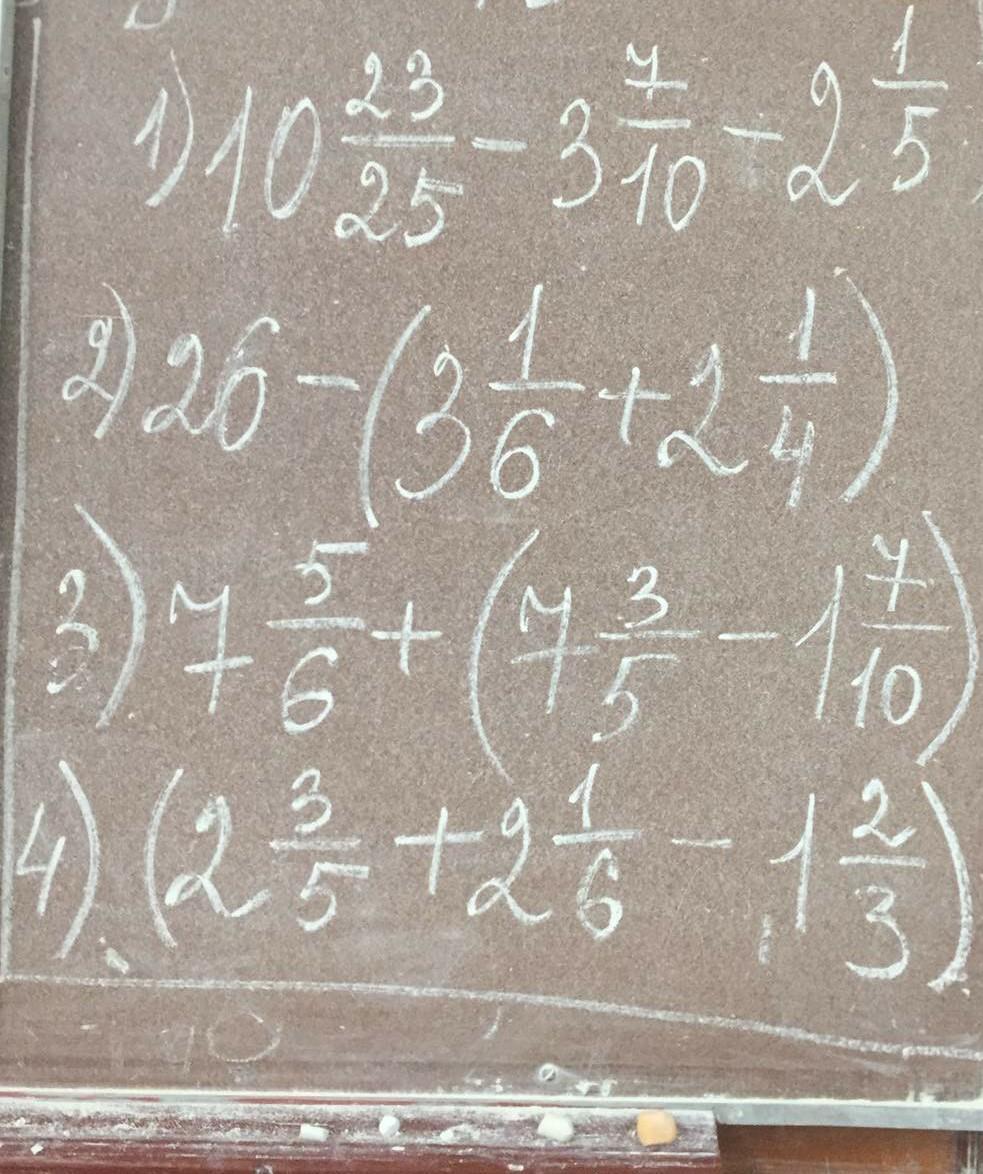 1) 10 23/25 - 3 7/10 - 2 1/5
2) 26 - (3 1/6 + 2 1/4)
3) 7 5/6 + (7 3/5 - 1 7/10)
4) (2 3/5 + 2 1/6 - 1 2/3)